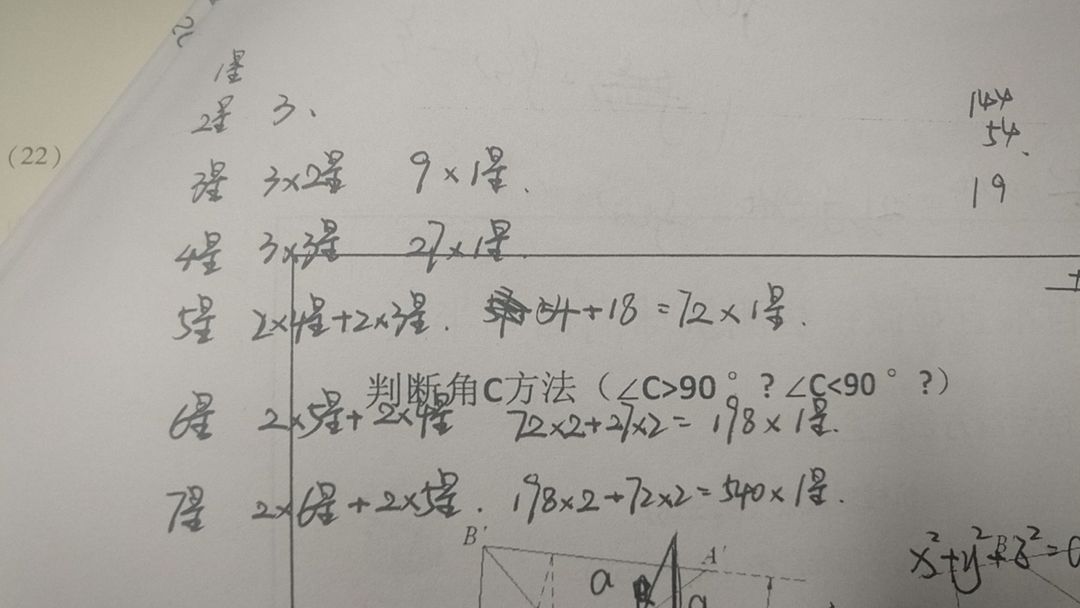 1星
2星 3、
144
54.
(22)
3星 3×2星 9×1星.
19
4星 3×3星 27×1星.
5星 2×4星+2×3星. 54+18=72×1星.
判断角C方法（∠C>90°？∠C<90°？）
6星 2×5星+2×4星 72×2+27×2=198×1星.
7星 2×6星+2×5星. 198×2+72×2=540×1星.
B' A'
a
x²+y²+z²=
B
a